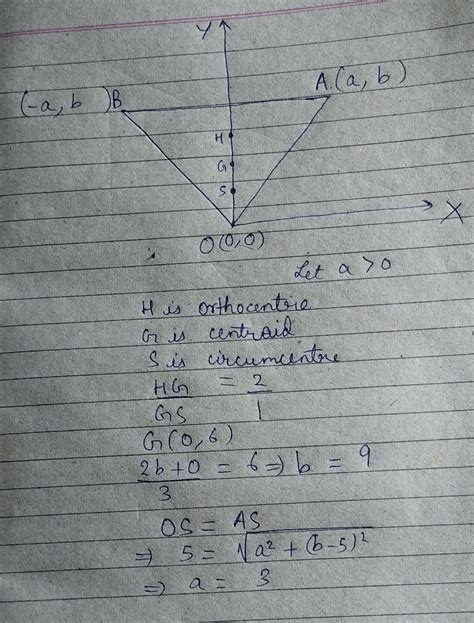 Y
A (a, b)
(-a, b) B
H
G
S
X
O (0,0)
Let a > 0
H is orthocentre
G is centroid
S is circumcentre
HG/GS = 2/1
G(0,6)
(2b+0)/3 = 6 ⇒ b = 9
OS = AS
⇒ 5 = √(a² + (b-5)²)
⇒ a = 3